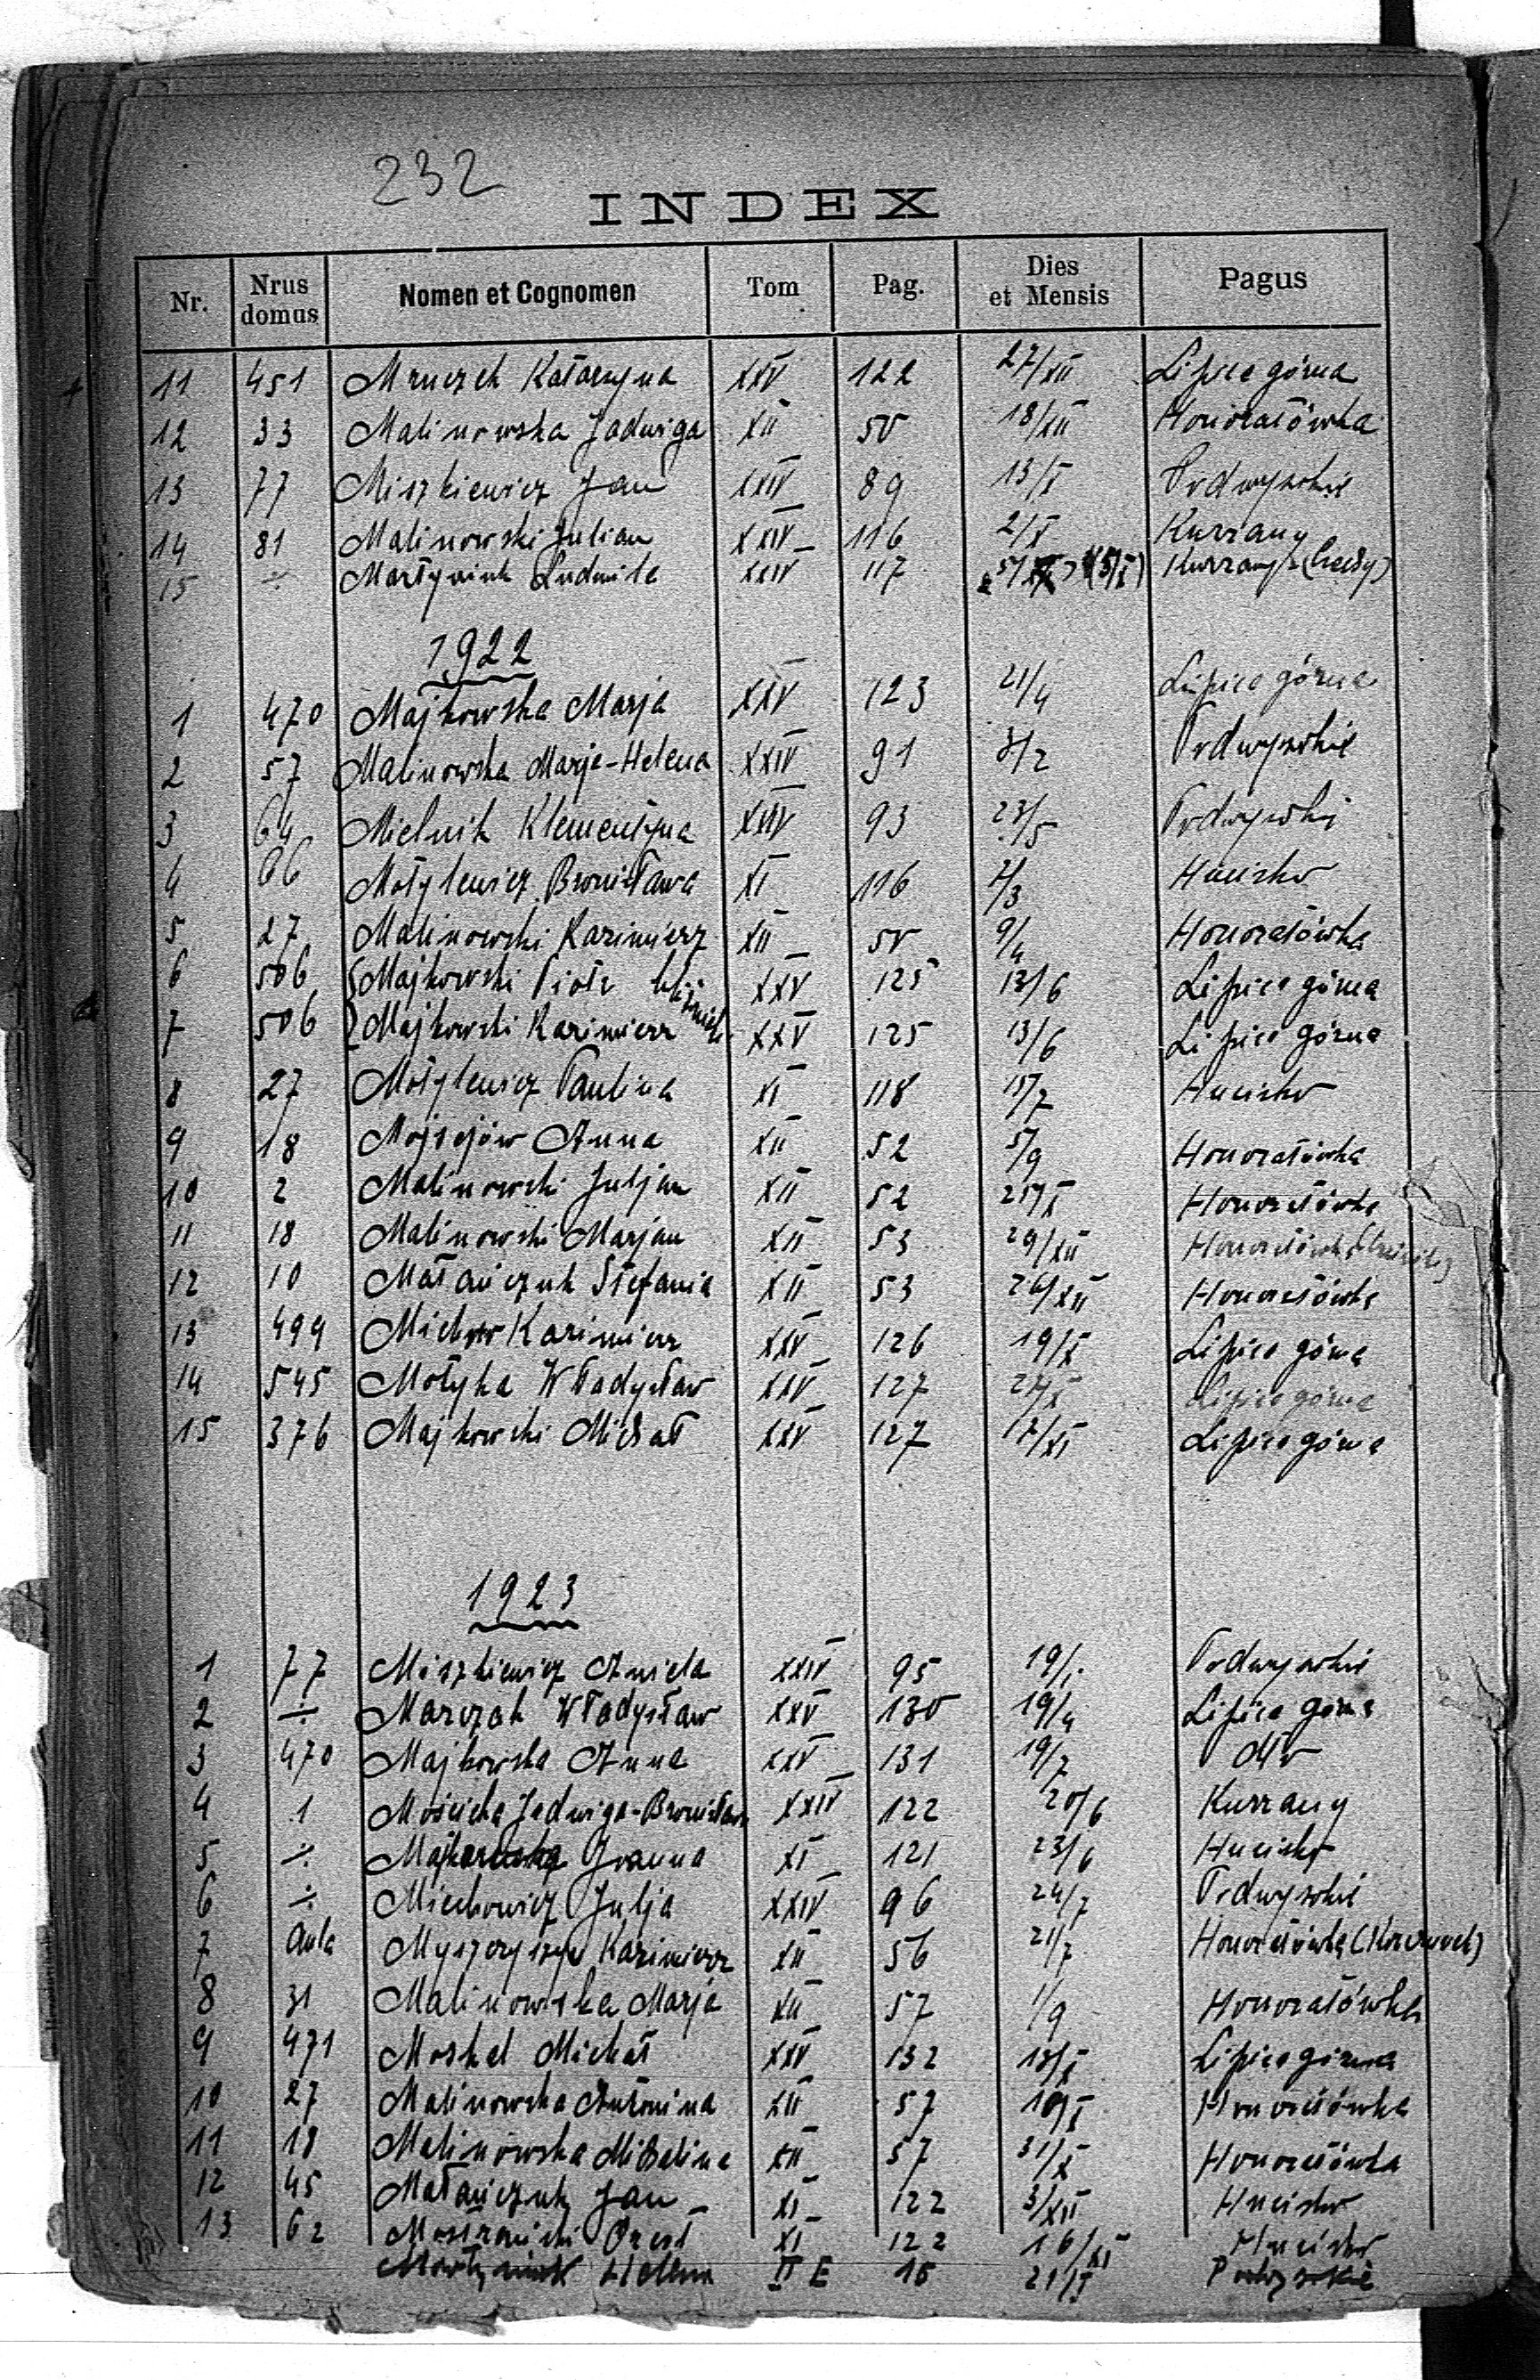 232
INDEX
Nr. Nrus domus Nomen et Cognomen Tom Pag. Dies et Mensis Pagus
11 451 Mruczek Katarzyna XXV 122 27/XII Lipica górna
12 33 Malinowska Jadwiga XII 50 18/XII Honoratówka
13 77 Miszkiewicz Jan XXIV 89 13/X Podwysokie
14 81 Malinowski Julian XXIV 116 2/X Kurzany
15 ÷ Martyniuk Ludmila XXIV 117 (5/X) Kurzany
1922
1 470 Majkowska Marja XXV 123 21/4 Lipica górna
2 57 Malinowska Marja-Helena XXIV 91 3/2 Podwysokie
3 64 Mielnik Klementyna XXIV 93 23/5 Podwysoki
4 66 Motylewicz Bronisława XI 116 2/3 Hucisko
5 27 Malinowski Kazimierz XII 50 9/4 Honoratówka
6 506 Majkowski Piotr bliźnięta XXV 125 13/6 Lipica górna
7 506 Majkowski Kazimierz XXV 125 13/6 Lipica górna
8 27 Motylewicz Paulina XI 118 15/7 Hucisko
9 18 Mojsejów Anna XII 52 5/9 Honoratówka
10 2 Malinowski Juljan XII 52 25/X Honoratówka
11 18 Malinowski Marjan XII 53 29/XII Honoratówka
12 10 Matańczuk Stefania XII 53 26/XII Honoratówka
13 499 Kazimierz XXV 126 19/X Lipica górna
14 545 Motyka Władysław XXV 127 Lipica górna
15 376 Majkowski Michał XXV 127 17/XI Lipica górna
1923
1 77 Miszkiewicz Aniela XXIV 95 19/1. Podwysokie
2 ÷ Marczak Władysław XXV 130 19/4 Lipica górna
3 470 Majkowska Anna XXV 131 19/7 dtto
4 1 Mościcka Jadwiga-Bronisława XXIV 122 20/6 Kurzany
5 ÷ Joanna XI 121 23/6 Hucisko
6 ÷ Miechowicz Julja XXIV 96 24/7 Podwysokie
7 Aula Myszczyszyn Kazimierz XII 56 21/7 Honoratówka
8 31 Malinowska Marja XII 57 1/9 Honoratówka
9 471 Moskal Michał XXV 132 18/X Lipica górna
10 27 Malinowska Antonina XII 57 Honoratówka
11 18 Malinowska Michalina XII 57 31/X Honoratówka
12 45 Matańczuk Jan XI 122 3/XII Hucisko
13 62 Orest XI 122 16/XI Hucisko
Martyniuk Helena II E 15 21/I Podwysokie